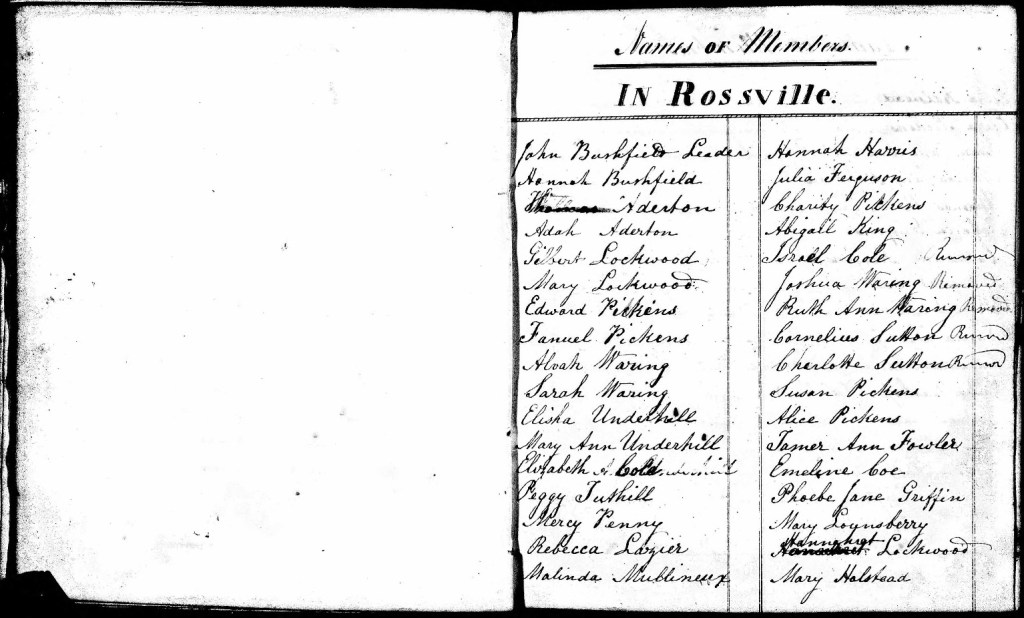 Names of Members.
In Rossville.
John Bushfield Leader
Hannah Bushfield
Aderton
Adah Aderton
Gilbert Lockwood
Mary Lockwood
Edward Pickens
Fanuel Pickens
Alvah Waring
Sarah Waring
Elisha Underhill
Mary Ann Underhill
Elizabeth A. Cold
Peggy Tuthill
Mercy Penny
Rebecca Lozier
Malinda Mullineux
Hannah Harris
Julia Ferguson
Charity Pickens
Abigail King
Israel Cole Removed
Joshua Waring Removed
Ruth Ann Waring Removed
Cornelius Sutton Removd
Charlotte Sutton Removd
Susan Pickens
Alice Pickens
Tamer Ann Fowler
Emeline Coe
Phoebe Jane Griffin
Mary Lounsberry
Lockwood
Mary Halstead